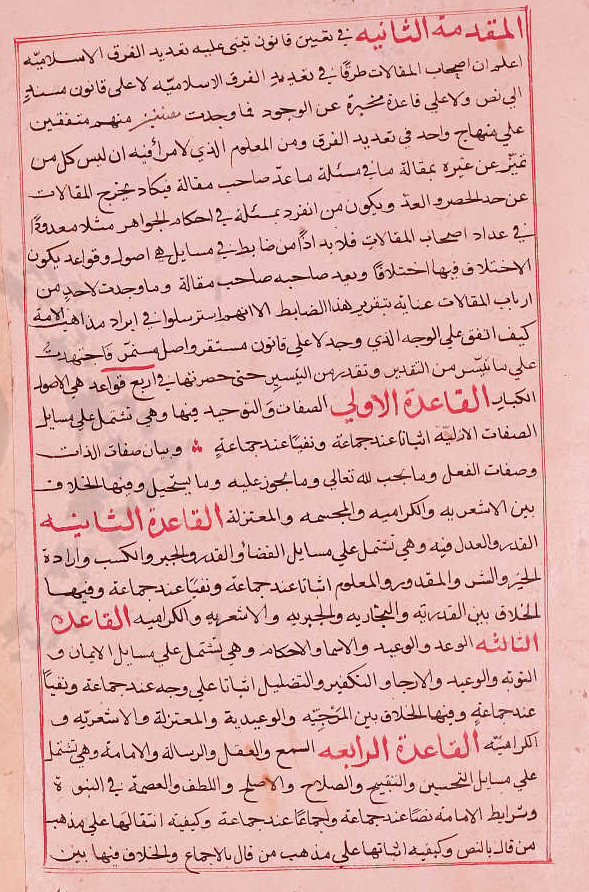 المقدمة الثانيه في تعيين قانون تبنى عليه تعديد الفرق الاسلاميّه
اعلم ان اصحاب المقالات طرقًا في تعديد الفرق الاسلاميّه لا على قانون مستند
الى نص ولا على قاعدة مخبرة عن الوجود فما وجدت منهم متفقين
على منهاج واحد في تعديد الفرق ومن المعلوم الذي لا مراء فيه ان ليس كل من
تميّز عن غيره بمقالة ما في مسئلة ما عدّ صاحب مقالة فيكاد يخرج المقالات
عن حد الحصر والعدّ ويكون من انفرد بمسئلة في احكام الجواهر مثلا معدودًا
في عداد اصحاب المقالات فلا بد اذًا من ضابط في مسايل هي اصول وقواعد يكون
الاختلاف فيها اختلافًا ويعد صاحبه صاحب مقالة وما وجدت لاحدٍ من
ارباب المقالات عناية بتقرير هذا الضابط الا انهم استرسلوا في ايراد مذاهب الامة
كيف اتفق على الوجه الذي وجد لا على قانون مستقر واصل مستمرّ فاجتهدتُ
على ما تيسّر من التقدير وتقدر من التيسير حتى حصرتها في اربع قواعد هي الاصول
الكبار القاعدة الاولي الصفات والتوحيد فيها وهي تشتمل على مسايل
الصفات الازليّة اثباتا عند جماعة ونفيًا عند جماعةٍ وبيان صفات الذات
وصفات الفعل وما يجب لله تعالى وما يجوز عليه وما يستحيل وفيها الخلاف
بين الاشعريه والكراميه والمجسمه والمعتزلة القاعدة الثانيه
القدر والعدل فيه وهي تشتمل على مسايل القضا والقدر والجبر والكسب وارادة
الخير والشر والمقدور والمعلوم اثباتا عند جماعة ونفيًا عند جماعة وفيها
الخلاف بين القدريّه والنجاريه والجبريه والاشعريه والكراميه القاعدة
الثالثه الوعد والوعيد والاسما والاحكام وهي تشتمل على مسايل الايمان و
التوبة والوعيد والارجا والتكفير والتضليل اثباتا على وجه عند جماعة ونفياً
عند جماعةٍ وفيها الخلاف بين المرجئيّه والوعيدية والمعتزلة والاشعريّه و
الكراميّه القاعدة الرابعه السمع والعقل والرسالة والامامة وهي تشتمل
على مسايل التحسين والتقبيح والصلاح والاصلح واللطف والعصمة في النبوة
وشرايط الامامة نصًا عند جماعة واجماعًا عند جماعة وكيفيه انتقالها على مذهب
من قال بالنص وكيفيه اثباتها على مذهب من قال بالاجماع والخلاف فيها بين